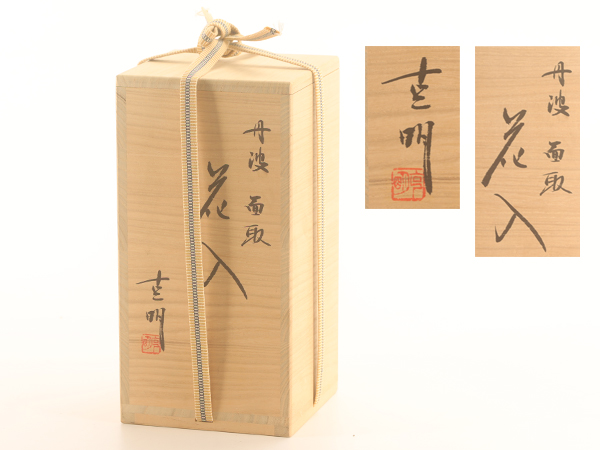 丹波 面取
花入
明
丹波 面取
花入
明